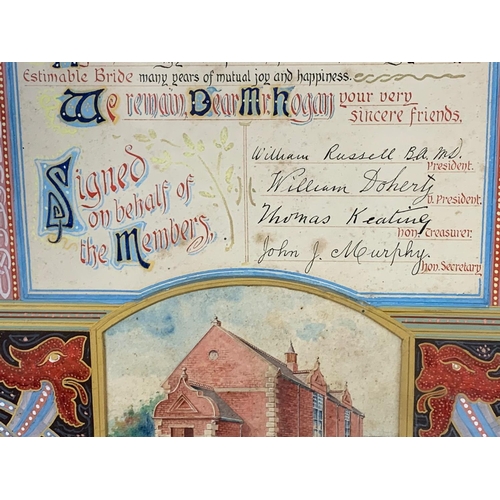 Estimable Bride many years of mutual joy and happiness.
We remain, Dear Mr. Hogan your very
sincere friends,
Signed
on behalf of
the Members,
William Russell B.A. M.D.
President.
William Doherty
V. President.
Thomas Keating
Hon. Treasurer.
John J. Murphy.
Hon. Secretary